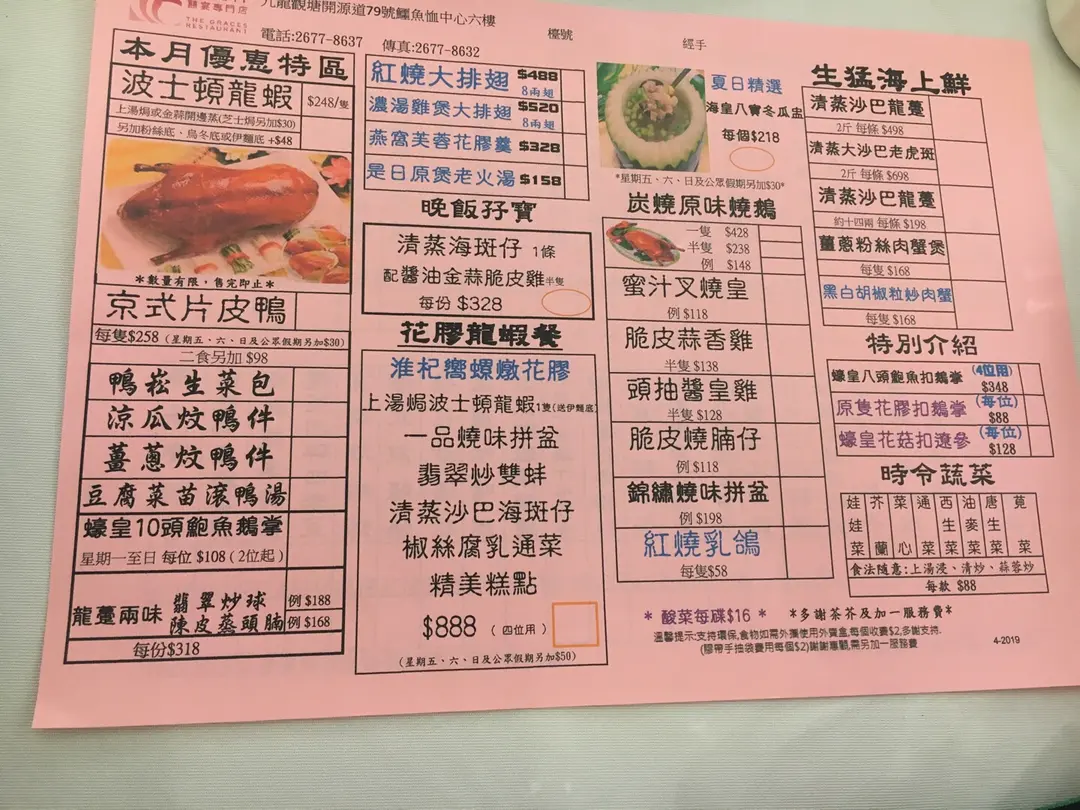 囍宴專門店
THE GRACES
RESTAURANT
九龍觀塘開源道79號鱷魚恤中心六樓
電話:2677-8637 傳真:2677-8632
檯號
經手
本月優惠特區
波士頓龍蝦 $248/隻
上湯焗或金蒜開邊蒸(芝士焗另加$30)
另加粉絲底、烏冬底或伊麵底 +$48
*數量有限，售完即止*
京式片皮鴨
每隻$258 (星期五、六、日及公眾假期另加$30)
二食另加 $98
鴨崧生菜包
涼瓜炆鴨件
薑蔥炆鴨件
豆腐菜苗滾鴨湯
蠔皇10頭鮑魚鵝掌
星期一至日 每位 $108 (2位起)
龍躉兩味
翡翠炒球 例 $188
陳皮蒸頭腩 例 $168
每份$318
紅燒大排翅 $488
8兩翅
濃湯雞煲大排翅 $520
8兩翅
燕窩芙蓉花膠羹 $328
是日原煲老火湯 $158
晚飯孖寶
清蒸海斑仔 1條
配醬油金蒜脆皮雞半隻
每份 $328
花膠龍蝦餐
淮杞嚮螺燉花膠
上湯焗波士頓龍蝦1隻(送伊麵底)
一品燒味拼盆
翡翠炒雙蚌
清蒸沙巴海斑仔
椒絲腐乳通菜
精美糕點
$888 (四位用)
(星期五、六、日及公眾假期另加$50)
夏日精選
海皇八寶冬瓜盅
每個$218
*星期五、六、日及公眾假期另加$30*
炭燒原味燒鵝
一隻 $428
半隻 $238
例 $148
蜜汁叉燒皇
例 $118
脆皮蒜香雞
半隻 $138
頭抽醬皇雞
半隻 $128
脆皮燒腩仔
例 $118
錦繡燒味拼盆
例 $198
紅燒乳鴿
每隻$58
生猛海上鮮
清蒸沙巴龍躉
2斤 每條 $498
清蒸大沙巴老虎斑
2斤 每條 $698
清蒸沙巴龍躉
約十四兩 每條 $198
薑蔥粉絲肉蟹煲
每隻 $168
黑白胡椒粒炒肉蟹
每隻 $168
特別介紹
蠔皇八頭鮑魚扣鵝掌 (4位用)
$348
原隻花膠扣鵝掌 (每位)
$88
蠔皇花菇扣遼參 (每位)
$128
時令蔬菜
娃娃菜 芥蘭 菜心 通菜 西生菜 油麥菜 唐生菜 莧菜
食法隨意:上湯浸、清炒、蒜蓉炒
每款 $88
* 酸菜每碟$16 * *多謝茶芥及加一服務費*
溫馨提示:支持環保,食物如需外攜使用外賣盒,每個收費$2,多謝支持.
(膠帶手抽袋費用每個$2)謝謝惠顧,需另加一服務費
4-2019